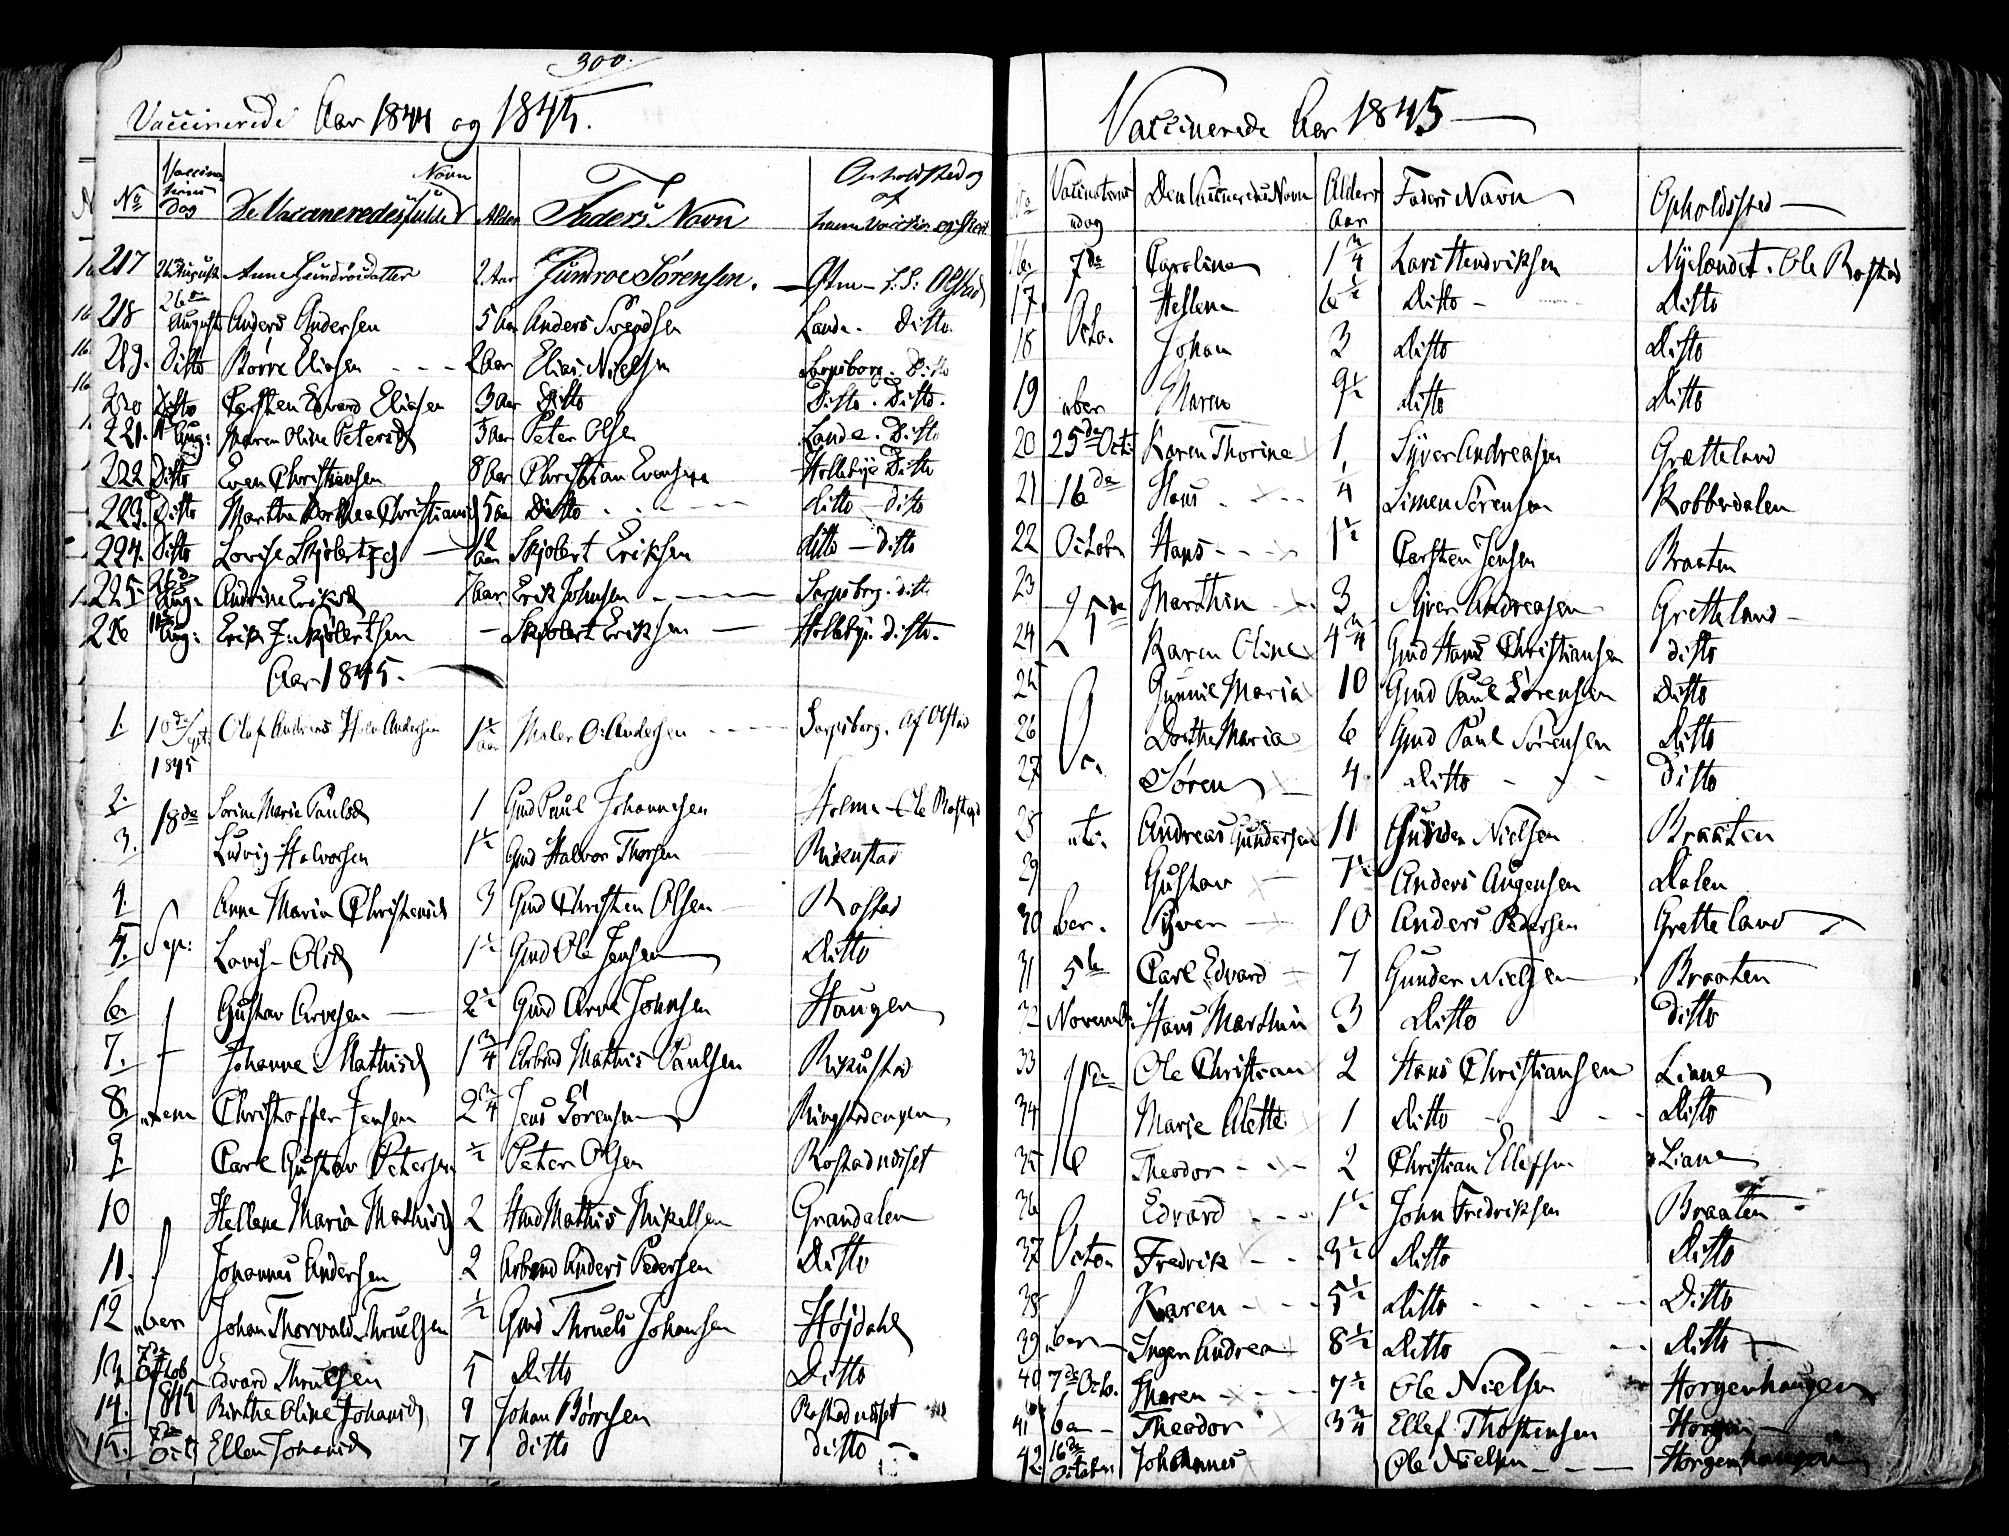 300.
Vaccinerede Aar 1844 og 1845.
No Vaccinations Dag De Vaccineredes fulde Navn Alder Faders Navn Opholdsted og af hvem
217 26de August Anne Gundrosdatter 2 Aar Gundroe Sørensen. Olstad
218 26de August Anders Andersen 5 Aar Anders Svendsen Lande. Ditto.
219. Ditto Børre Eliasen 2 Aar Elias Nielsen Sarpsborg. Ditto
220 Ditto Carsten Edvard Eliasen 3 Aar Ditto Ditto. Ditto.
221. Aug: Maren Oline Petersd 3 Aar Peter Olsen Lande. Ditto
222 Ditto Even Christiansen 8 Aar Christian Evensen Hollebye Ditto
223. Ditto Martha Dorthea Christiansd 5 Aar Ditto ditto - ditto
224. Ditto Lovise Skjøbertsd Aar Skjøbert Eriksen ditto - ditto
225 26de Aug. Andrine Eriksd 7 Aar Erik Johnsen Sarpsborg. ditto
226 Aug: Erik J: Skjøbertsen - Skjøbert Eriksen - Hollebye. ditto.
Aar 1845.
1. 10de Sept. 1845 Olaf Andreas Holm Andersen 1½ Aar Maler O: Andersen Sarpsborg. Af Olstad
2. 18de Sorine Marie Paulsd 1 Gmd Paul Johannesen Holme - Ole Rostad
3. Ludvig Halvorsen 1½ Gmd Halvor Thorsen
4. Anne Maria Christensd 3 Gmd Christen Olsen Rostad
5. Sep: Lovise Olsd 1½ Gmd Ole Jensen Ditto
6. Gustav Arvesen 2½ Gmd Arve Johnsen Haugen
7. Johanne Mathisd 1¾ Arbmd Mathis Paulsen
8. tem Christoffer Jensen 2¾ Jens Sørensen Ringstadengen
9. Carl Gustav Petersen ½ Peter Olsen Rostadnøsset
10 Hellene Maria Mathisd 2 Hmd Mathis Mikelsen Grandalen
11. Johannes Andersen 2 Arbmd Anders Pedersen Ditto
12 ber Johan Thorvald Thruelsen ½ Gmd Thruels Johansen Højdahl
13. 7de Octob 1845 Edvard Thruelsen 5 Ditto Ditto
14. Birthe Oline Johansd 9 Johan Børresen Rostadnøsset
15. 7de Oct Ellen Johansd 7 ditto ditto
Vaccinerede Aar 1845
No Vaccinations dag Den Vaccineredes Navn Alders Aar Faders Navn Opholdssted
16. 7de Caroline 1¾ Lars Hendriksen Nyelandet. Ole Rostad
17. Hellene 6½ Ditto - Ditto
18 Octo. Johan 3 Ditto Ditto
19 ober Maren 9½ Ditto Ditto
20 25de Oct: Karen Thorine 1 Syver Andreasen Grætteland
21 16de Hans ¼ Simen Sørensen Kobberdalen
22 Octobr Hans 1½ Carsten Jensen Braaten
23 25de Marthin 3 Syver Andreasen Gretteland
24 Karen Oline 4¾ Gmd Hans Christiansen ditto
25 Gunnil Maria 10 Gmd Paul Sørensen Ditto
26 Oc. Dorthe Maria 6 Gmd Paul Sørensen Ditto
27 Søren 4 Ditto Ditto
28 to. Andreas Gundersen 11 Gunder Nielsen Braaten
29 Gustav 7½ Anders Augensen Dalen
30 ber. Syver 10 Anders Pedersen Gretteland
31 5te Carl Edvard 7 Gunder Nielsen Braaten
32 Novemb. Hans Marthin 3 Ditto Ditto
33 Ole Christian 2 Hans Christiansen Liane
34 Marie Alette 1 Ditto Ditto
35 16 Theodor 2 Christian Ellefsen Liane
36 Edvard 1½ John Fredriksen Braaten
37 Octo. Fredrik 3½ Ditto Ditto
38 Karen 5½ Ditto Ditto
39 ber Inger Andrea 8½ Ditto Ditto
40 7de Octo. Maren 7½ Ole Nielsen Horgenhaugen
41 Theodor 3¾ Ellef Thostensen Horgen
42. 16de October Johannes Ole Nielsen Horgenhaugen